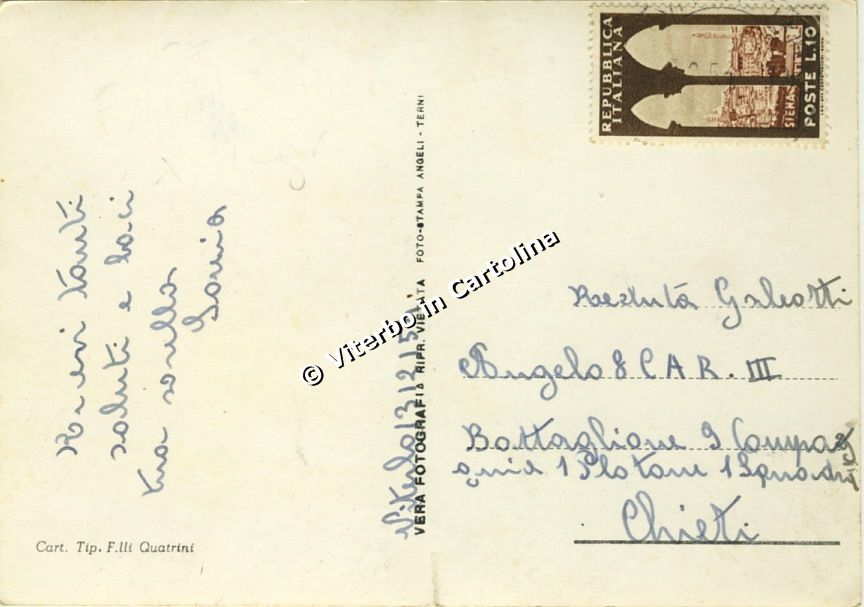 Ricevi tanti
saluti e baci
tua sorella
Sonia
Cart. Tip. F.lli Quatrini
Viterbo
VERA FOTOGRAFIA RIPR. VIETATA FOTO-STAMPA ANGELI - TERNI
© Viterbo in Cartolina
REPUBBLICA
ITALIANA
SIENA
POSTE L.10
Recluta Galeotti
Angelo 8 C A R. III
Battaglione 9 Compa
gnia 1 Plotone 1 Squadra
Chieti